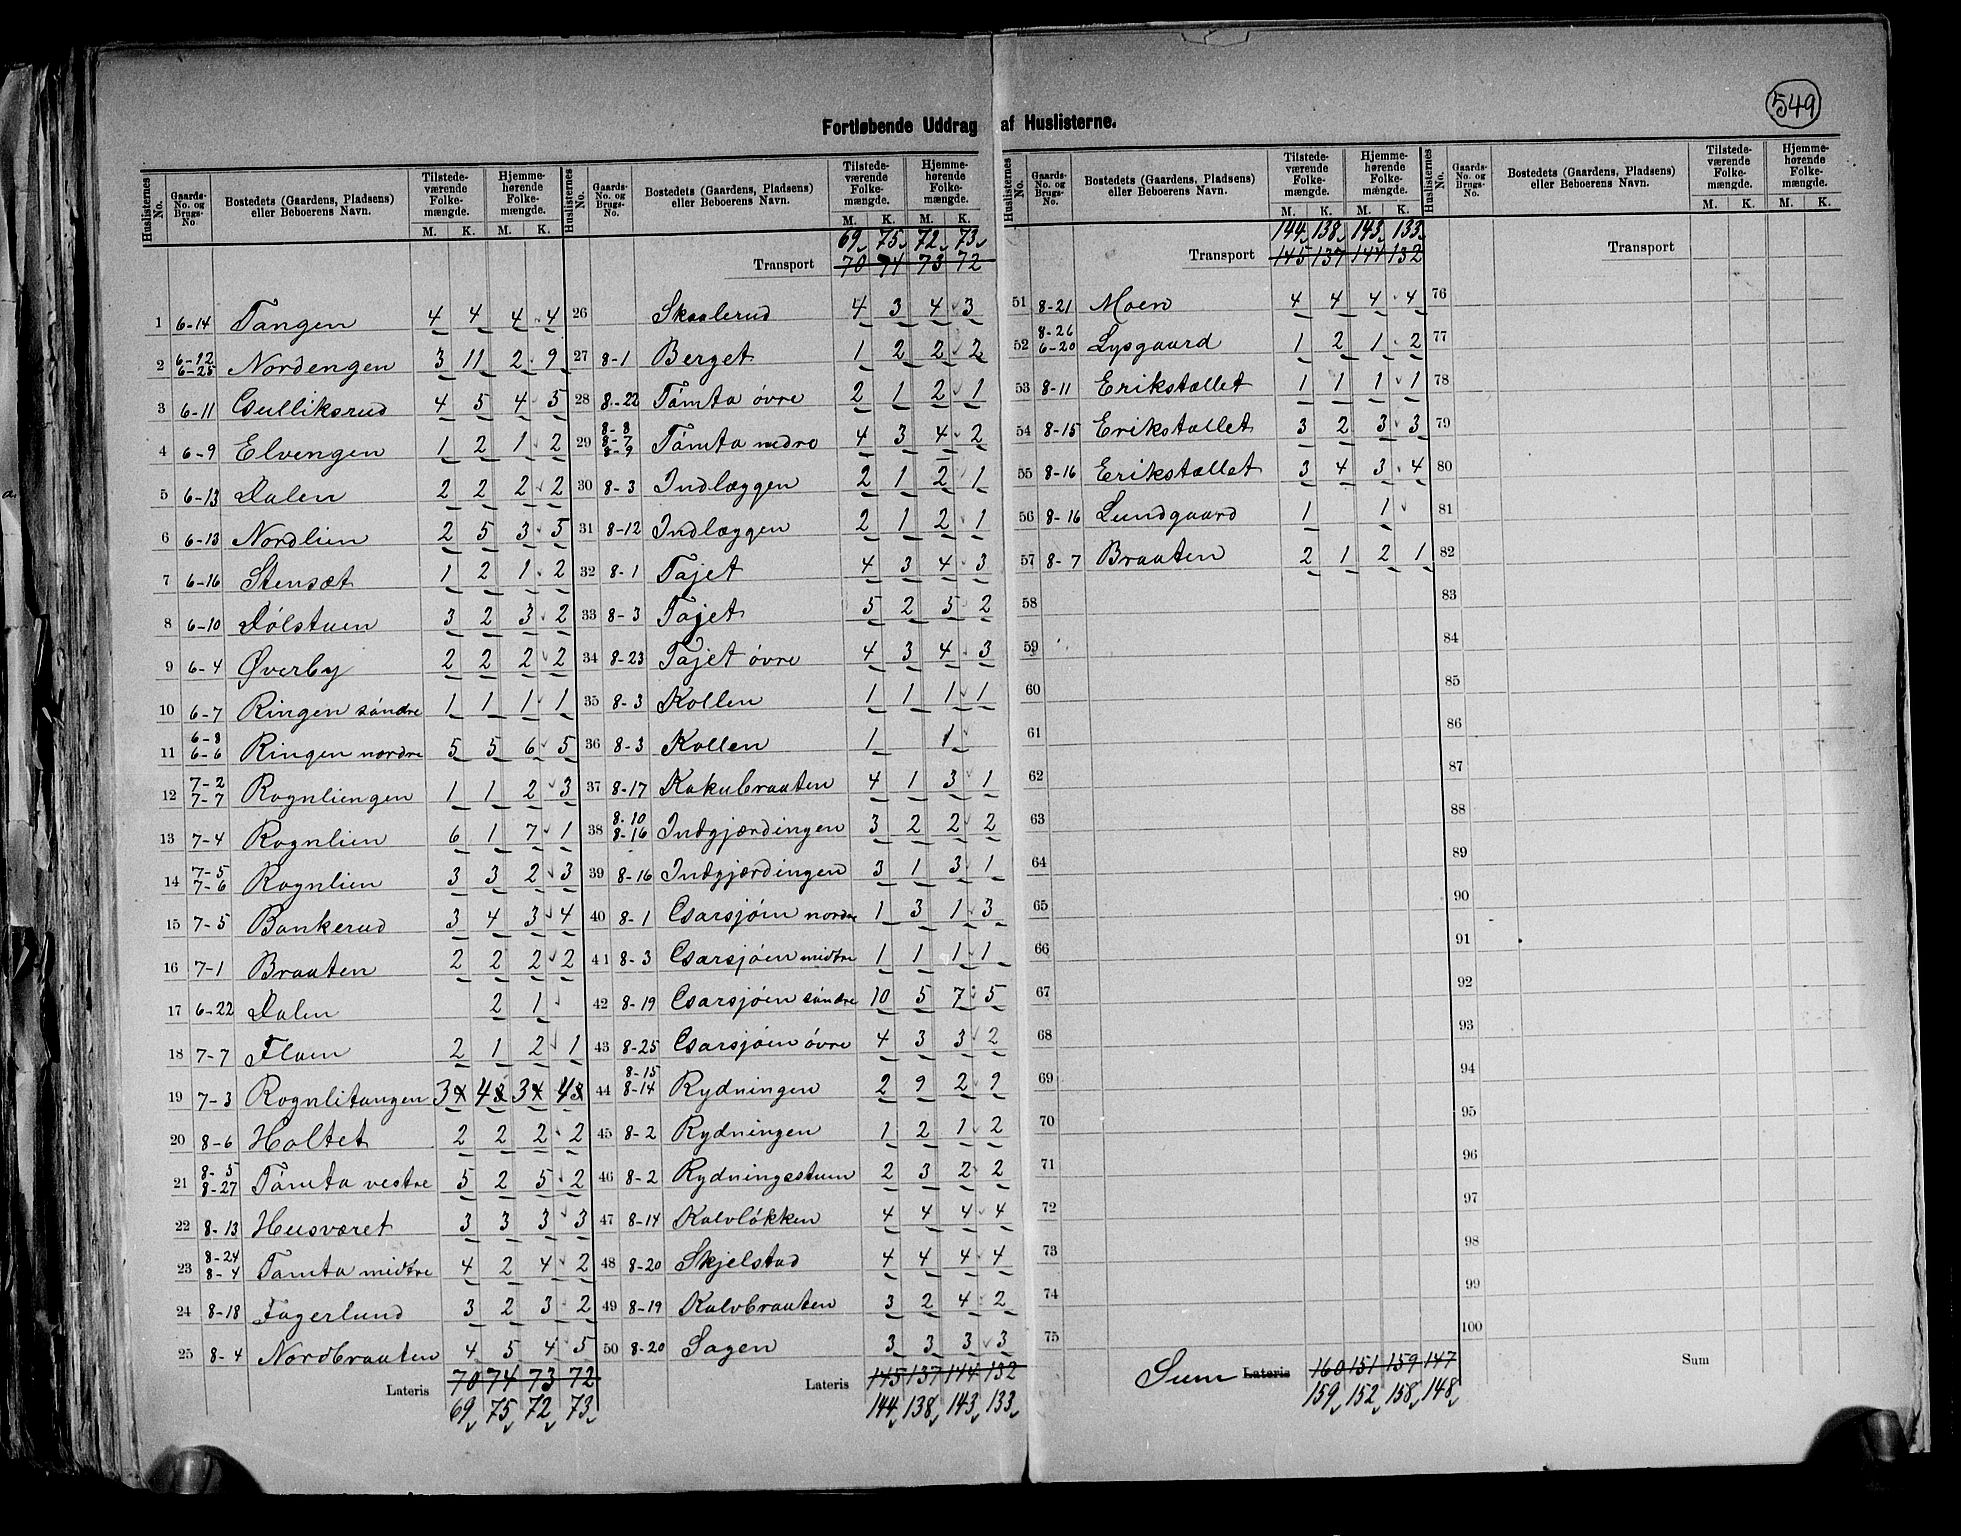 549
Fortløbende Uddrag af Huslisterne.
Huslisternes No. | Gaards-No. og Brugs-No. | Bostedets (Gaardens, Pladsens) eller Beboerens Navn. | Tilstedeværende Folkemængde. M. K. | Hjemmehørende Folkemængde. M. K.
1 6-14 Tangen 4 4 4 4
2 6-12 6-25 Nordengen 3 11 2 9
3 6-11 Gulliksrud 4 5 4 5
4 6-9 Elvengen 1 2 1 2
5 6-13 Dalen 2 2 2 2
6 6-13 Nordlien 2 5 3 5
7 6-16 Stensæt 1 2 1 2
8 6-10 Dølstuen 3 2 3 2
9 6-4 Øverby 2 2 2 2
10 6-7 Ringen søndre 1 1 1 1
11 6-8 6-6 Ringen nordre 5 5 6 5
12 7-2 7-7 Rognliengen 1 1 2 3
13 7-4 Rognlien 6 1 7 1
14 7-5 7-6 Rognlien 3 3 2 3
15 7-5 Bankerud 3 4 3 4
16 7-1 Braaten 2 2 2 2
17 6-22 Dalen 2 1
18 7-7 Floen 2 1 2 1
19 7-3 Rognlitangen 3 4 3 4
20 8-6 Holtet 2 2 2 2
21 8-5 8-27 Tömta vestre 5 2 5 2
22 8-13 Husværet 3 3 3 3
23 8-24 8-4 Tömta midtre 4 2 4 2
24 8-18 Fagerlund 3 2 3 2
25 8-4 Nordbraaten 4 5 4 5
Lateris 70 74 73 72
69 75 72 73
69 75 72 73
Transport 70 74 73 72
26 Skaalerud 4 3 4 3
27 8-1 Berget 1 2 2 2
28 8-22 Tömta øvre 2 1 2 1
29 8-8 8-7 8-9 Tömta nedre 4 3 4 2
30 8-3 Indlæggen 2 1 2 1
31 8-12 Indlæggen 2 1 2 1
32 8-1 Tajet 4 3 4 3
33 8-3 Tajet 5 2 5 2
34 8-23 Tajet øvre 4 3 4 3
35 8-3 Kollen 1 1 1 1
36 8-3 Kollen 1 1
37 8-17 Kakubraaten 4 1 3 1
38 8-10 8-16 Indgjærdingen 3 2 2 2
39 8-16 Indgjærdingen 3 1 3 1
40 8-1 Garsjøen nordre 1 3 1 3
41 8-3 Garsjøen midtre 1 1 1 1
42 8-19 Garsjøen søndre 10 5 7 5
43 8-25 Garsjøen øvre 4 3 3 2
44 8-15 8-14 Rydningen 2 9 2 9
45 8-2 Rydningen 1 2 1 2
46 8-2 Rydningsstuen 2 3 2 2
47 8-14 Kalvløkken 4 4 4 4
48 8-20 Skjelstad 4 4 4 4
49 8-19 Kalvbraaten 3 2 4 2
50 8-20 Sagen 3 3 3 3
Lateris 145 137 144 132
144 138 143 133
Huslisternes No. | Gaards-No. og Brugs-No. | Bostedets (Gaardens, Pladsens) eller Beboerens Navn. | Tilstedeværende Folkemængde. M. K. | Hjemmehørende Folkemængde. M. K.
144 138 143 133
Transport 145 137 144 132
51 8-21 Moen 4 4 4 4
52 8-26 6-20 Lysgaard 1 2 1 2
53 8-11 Erikstallet 1 1 1 1
54 8-15 Erikstallet 3 2 3 3
55 8-16 Erikstallet 3 4 3 4
56 8-16 Lundgaard 1 1
57 8-7 Braaten 2 1 2 1
58
59
60
61
62
63
64
65
66
67
68
69
70
71
72
73
74
75
Sum Lateris 160 151 159 147
159 152 158 148
Transport
76
77
78
79
80
81
82
83
84
85
86
87
88
89
90
91
92
93
94
95
96
97
98
99
100
Sum